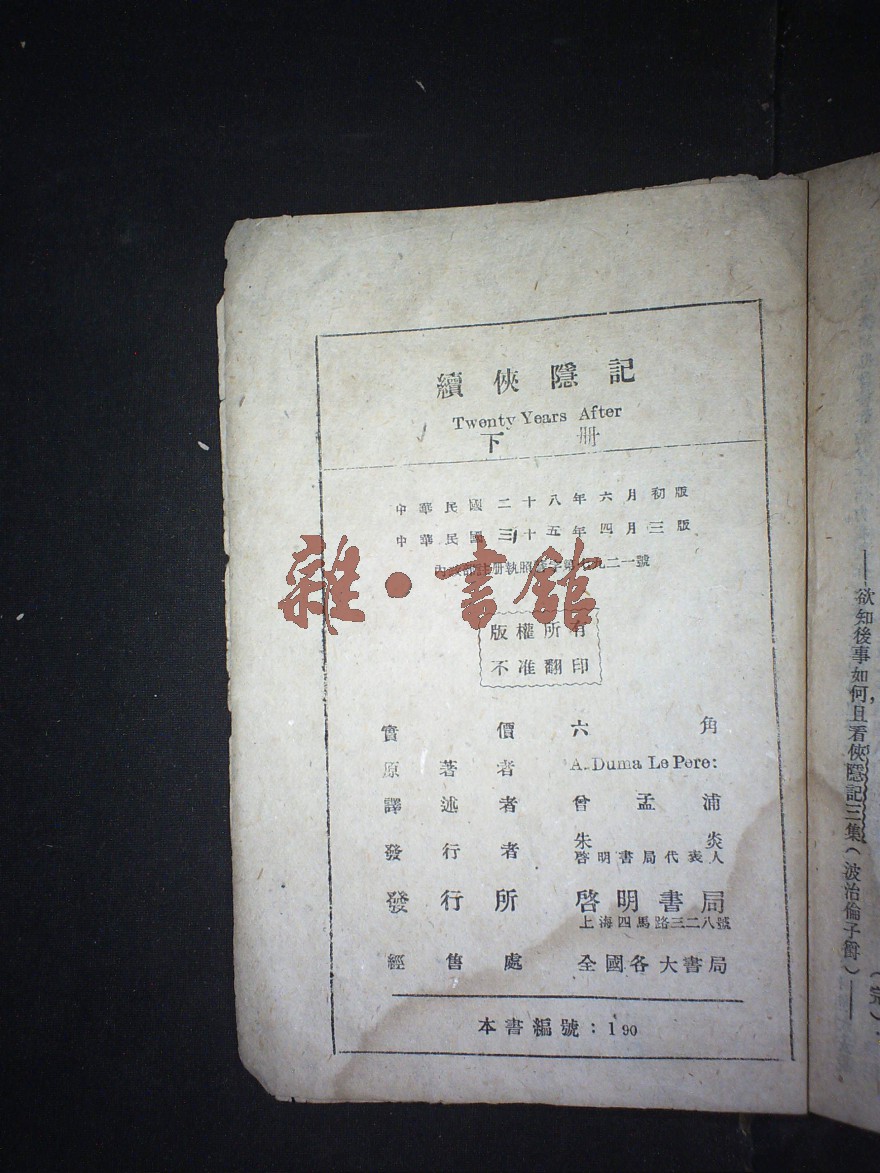 續俠隱記
Twenty Years After
下册
中華民國二十八年六月初版
中華民國三十五年四月三版
內政部註册執照警字第七九二一號
雜·書館
版權所有
不准翻印
實價 六角
原著者 A. Duma Le Pere:
譯述者 曾孟浦
發行者 朱炎
啓明書局代表人
發行所 啓明書局
上海四馬路三二八號
經售處 全國各大書局
本書編號:190
——欲知後事如何,且看俠隱記三集(波治倫子爵)——
(完).